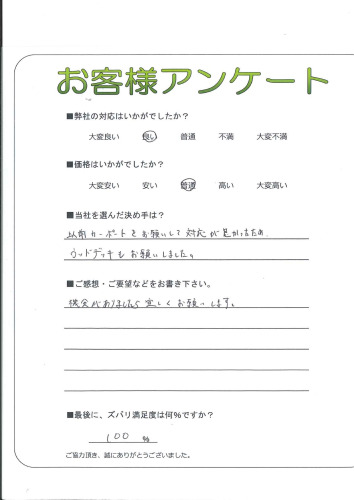 お客様アンケート
■弊社の対応はいかがでしたか？
大変良い　良い　普通　不満　大変不満
■価格はいかがでしたか？
大変安い　安い　普通　高い　大変高い
■当社を選んだ決め手は？
以前カーポートをお願いして対応が良かったため
ウッドデッキもお願いしました。
■ご感想・ご要望などをお書き下さい。
機会がありましたら宜しくお願いします。
■最後に、ズバリ満足度は何％ですか？
100 %
ご協力頂き、誠にありがとうございました。